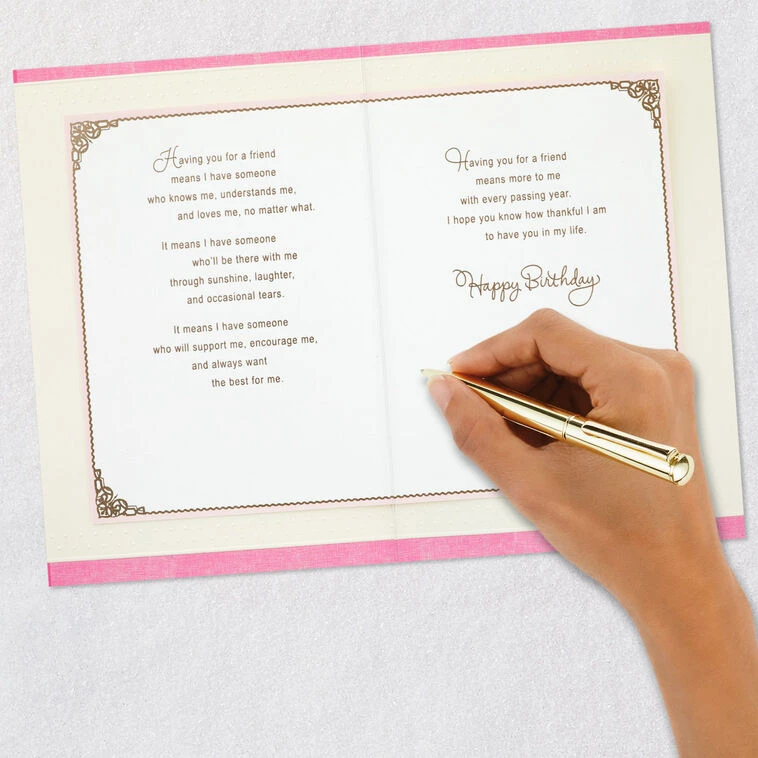 Having you for a friend
means I have someone
who knows me, understands me,
and loves me, no matter what.
It means I have someone
who'll be there with me
through sunshine, laughter,
and occasional tears.
It means I have someone
who will support me, encourage me,
and always want
the best for me.
Having you for a friend
means more to me
with every passing year.
I hope you know how thankful I am
to have you in my life.
Happy Birthday